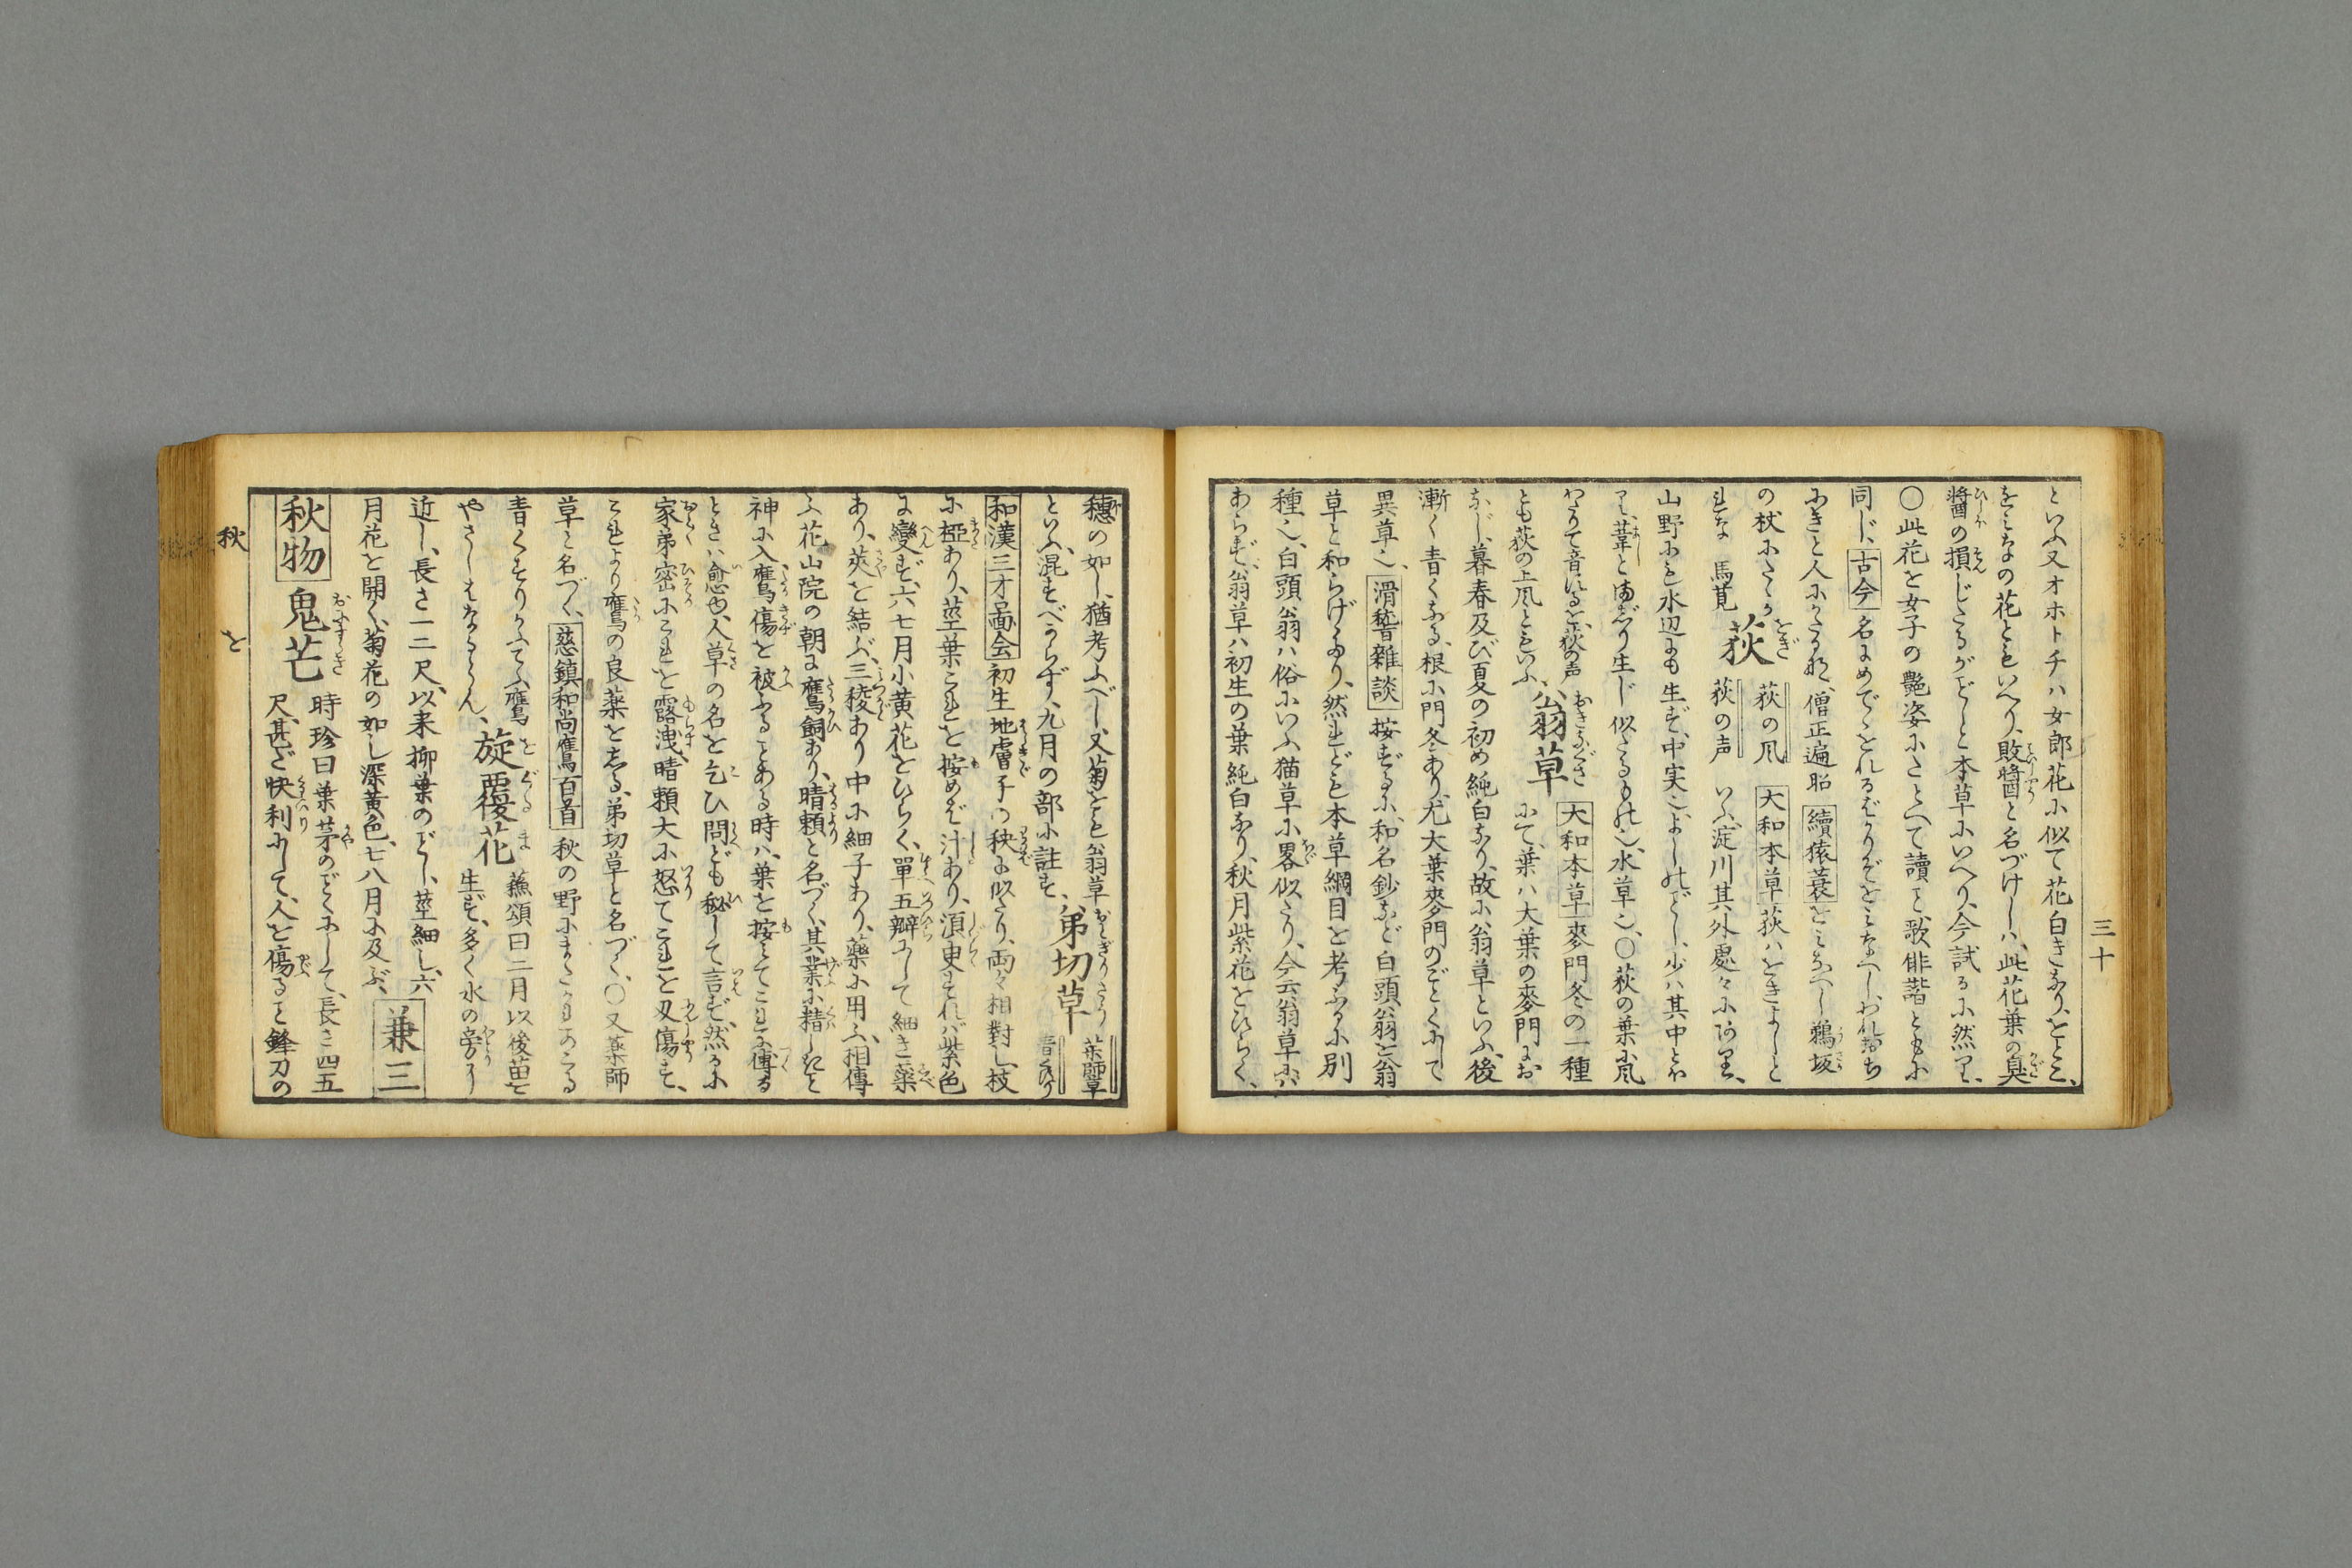 三十
といふ又オホトチハ女郎花に似て花白きなり、をとこ、
をみなの花ともいへり、敗醬と名づけしハ、此花葉の臭
醬の損じたるがごとと本草にいへり、今試るに然り、
〇此花を女子の艶姿にたとへて讀こ、歌俳諧ともに
同じ、古今 名にめでゝをれるばかりぞをみなへしわれおち
にきと人にかたるな、僧正遍昭 續猿蓑 とミなへし鵜坂
の杖にたゝか
れな 馬莧 荻 荻の風 荻の声 大和本草 荻ハをきよしと
いふ淀川其外處々に
山野にも水辺にも生ず、中実こ、よしのごとし、少ハ其中とほ
こ、葦とまじり生じ似たるものこ、水草こ、〇荻の葉に風
わたりて音するを、荻の声
とも荻の上風ともいふ 翁草 大和本草 麥門冬の一種
にて、葉ハ大葉の麥門にお
なじ、暮春及び夏の初め純白なり、故に翁草といふ、後
漸く青くなる、根に門冬あり、尤大葉麥門のごとくにして
異草こ、滑稽雜談 按ずるに、和名鈔など白頭翁を翁
草と和らげたり、然れども本草綱目を考ふるに別
種こ、白頭翁ハ俗にいふ猫草に畧似たり、今云翁草にハ
あらず、翁草ハ初生の葉純白なり、秋月紫花をひらく、
穗の如し、猶考ふべし、又菊をも翁草
といふ、混ずべからず、九月の部に註す、弟切草 薬師草 青くすり
和漢三才圖会 初生地膚子の秧に似たり、両々相對し枝
に椏あり、莖葉これを按めば汁あり、湏臾すれバ紫色
に變ず、六七月小黄花をひらく、單五瓣にして細き蘂
あり、莢を結ぶ、三稜あり中に細子あり、藥に用ふ、相傳
ふ花山院の朝に鷹飼あり、晴頼と名づく、其業に精しきこと
神に入、鷹傷を被ふることある時ハ、葉を按てこれに傅る
ときハ愈也、人草の名を乞ひ問ども秘して言ず、然るに
家弟密にこれを露洩、晴頼大に怒てこれを刄傷す、
これより鷹の良薬をしる、弟切草と名づく、〇又薬師
草と名づく、慈鎮和尚鷹百首 秋の野にまたかれのこる
青くすりかふてふ鷹
やさしはなるらん、旋覆花 蘓頌曰二月以後苗を
生ず、多く水の旁に
近し、長さ一二尺、以来柳葉のごとし、莖細し、六
月花を開く、菊花の如し深黄色、七八月に及ぶ、兼三
秋物 鬼芒 時珍曰葉茅のごとくにして、長さ四五
尺、甚ど快利にして、人を傷ると鋒刀の
秋 を